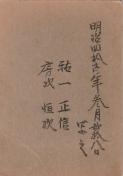 明治四拾六年参月弐拾八日
写之
祐一 正信
房次 恒次